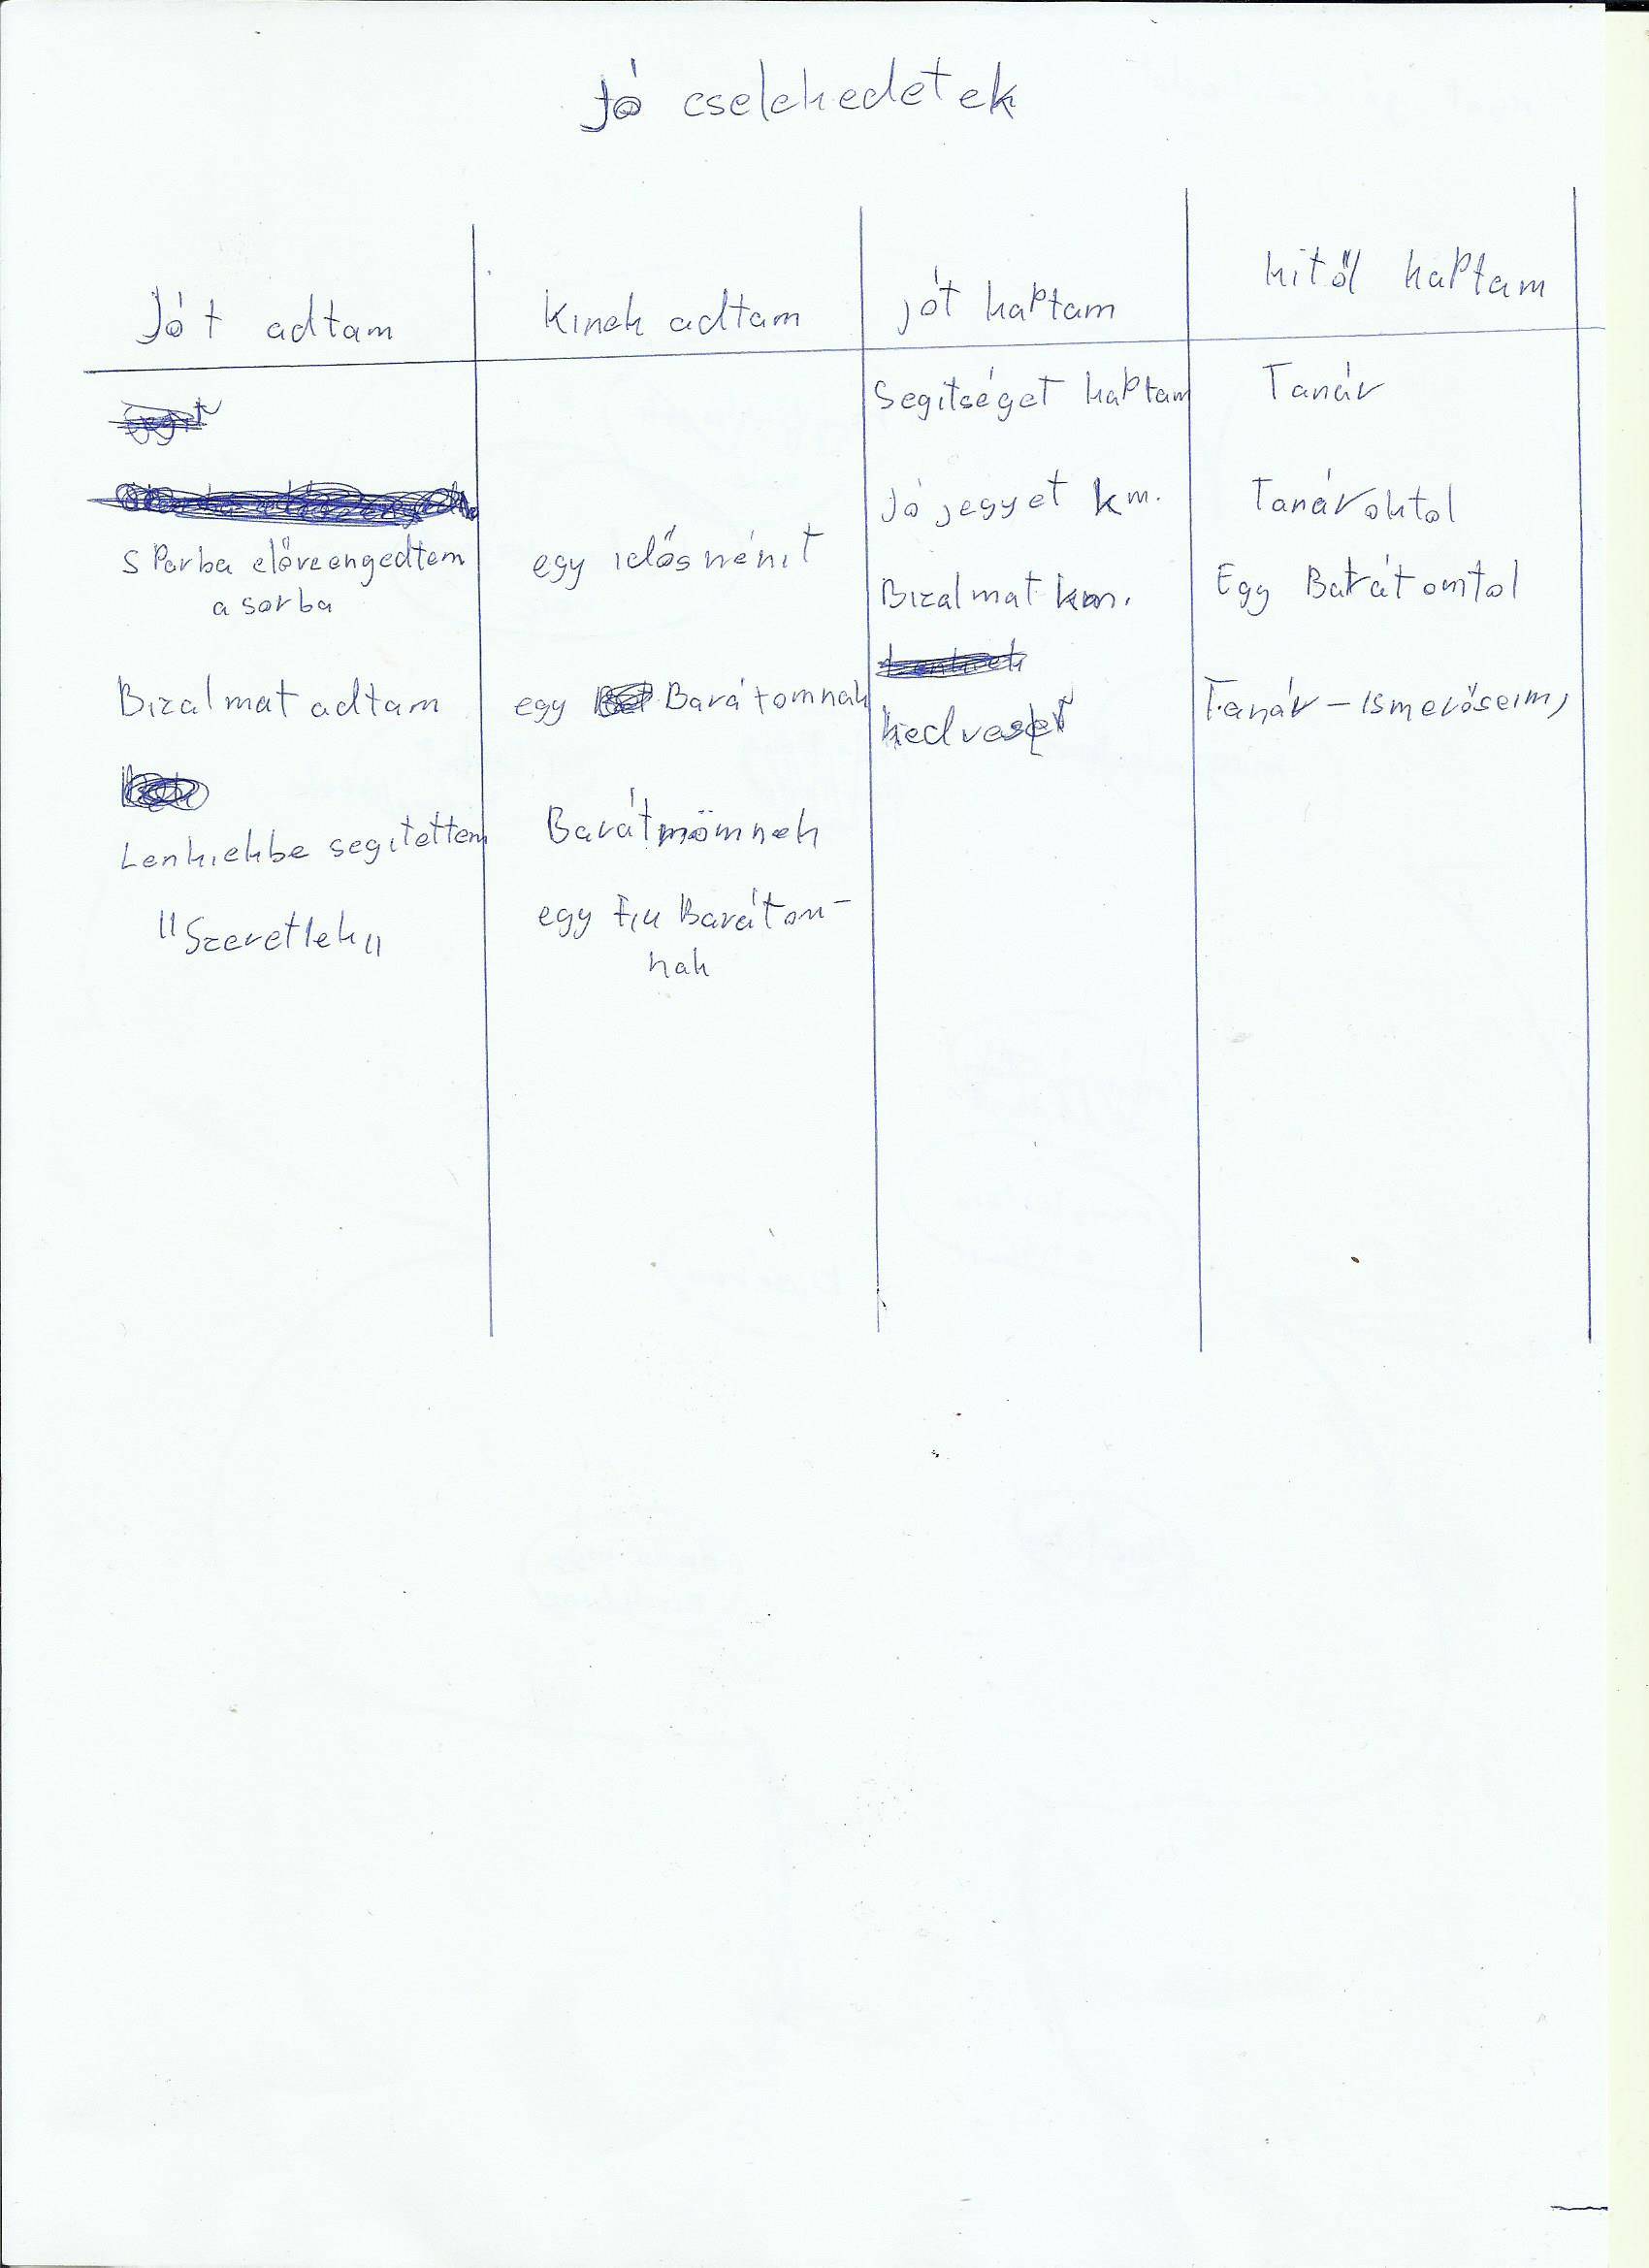 Jó cselekedetek
Jót adtam
Kinek adtam
jót kaptam
kitől kaptam
Segitséget kaptam
Tanár
Jó jegyet km.
Tanároktol
SParba előreengedtem
a sorba
egy idősnénit
Bizalmat km.
Egy Barátomtol
Bizalmat adtam
egy Barátomnak
kedves
Tanár - Ismerőseim,
Lenkiekbe segitettem
Barátnőmnek
"Szeretlek"
egy Fiu Barátom-
nak